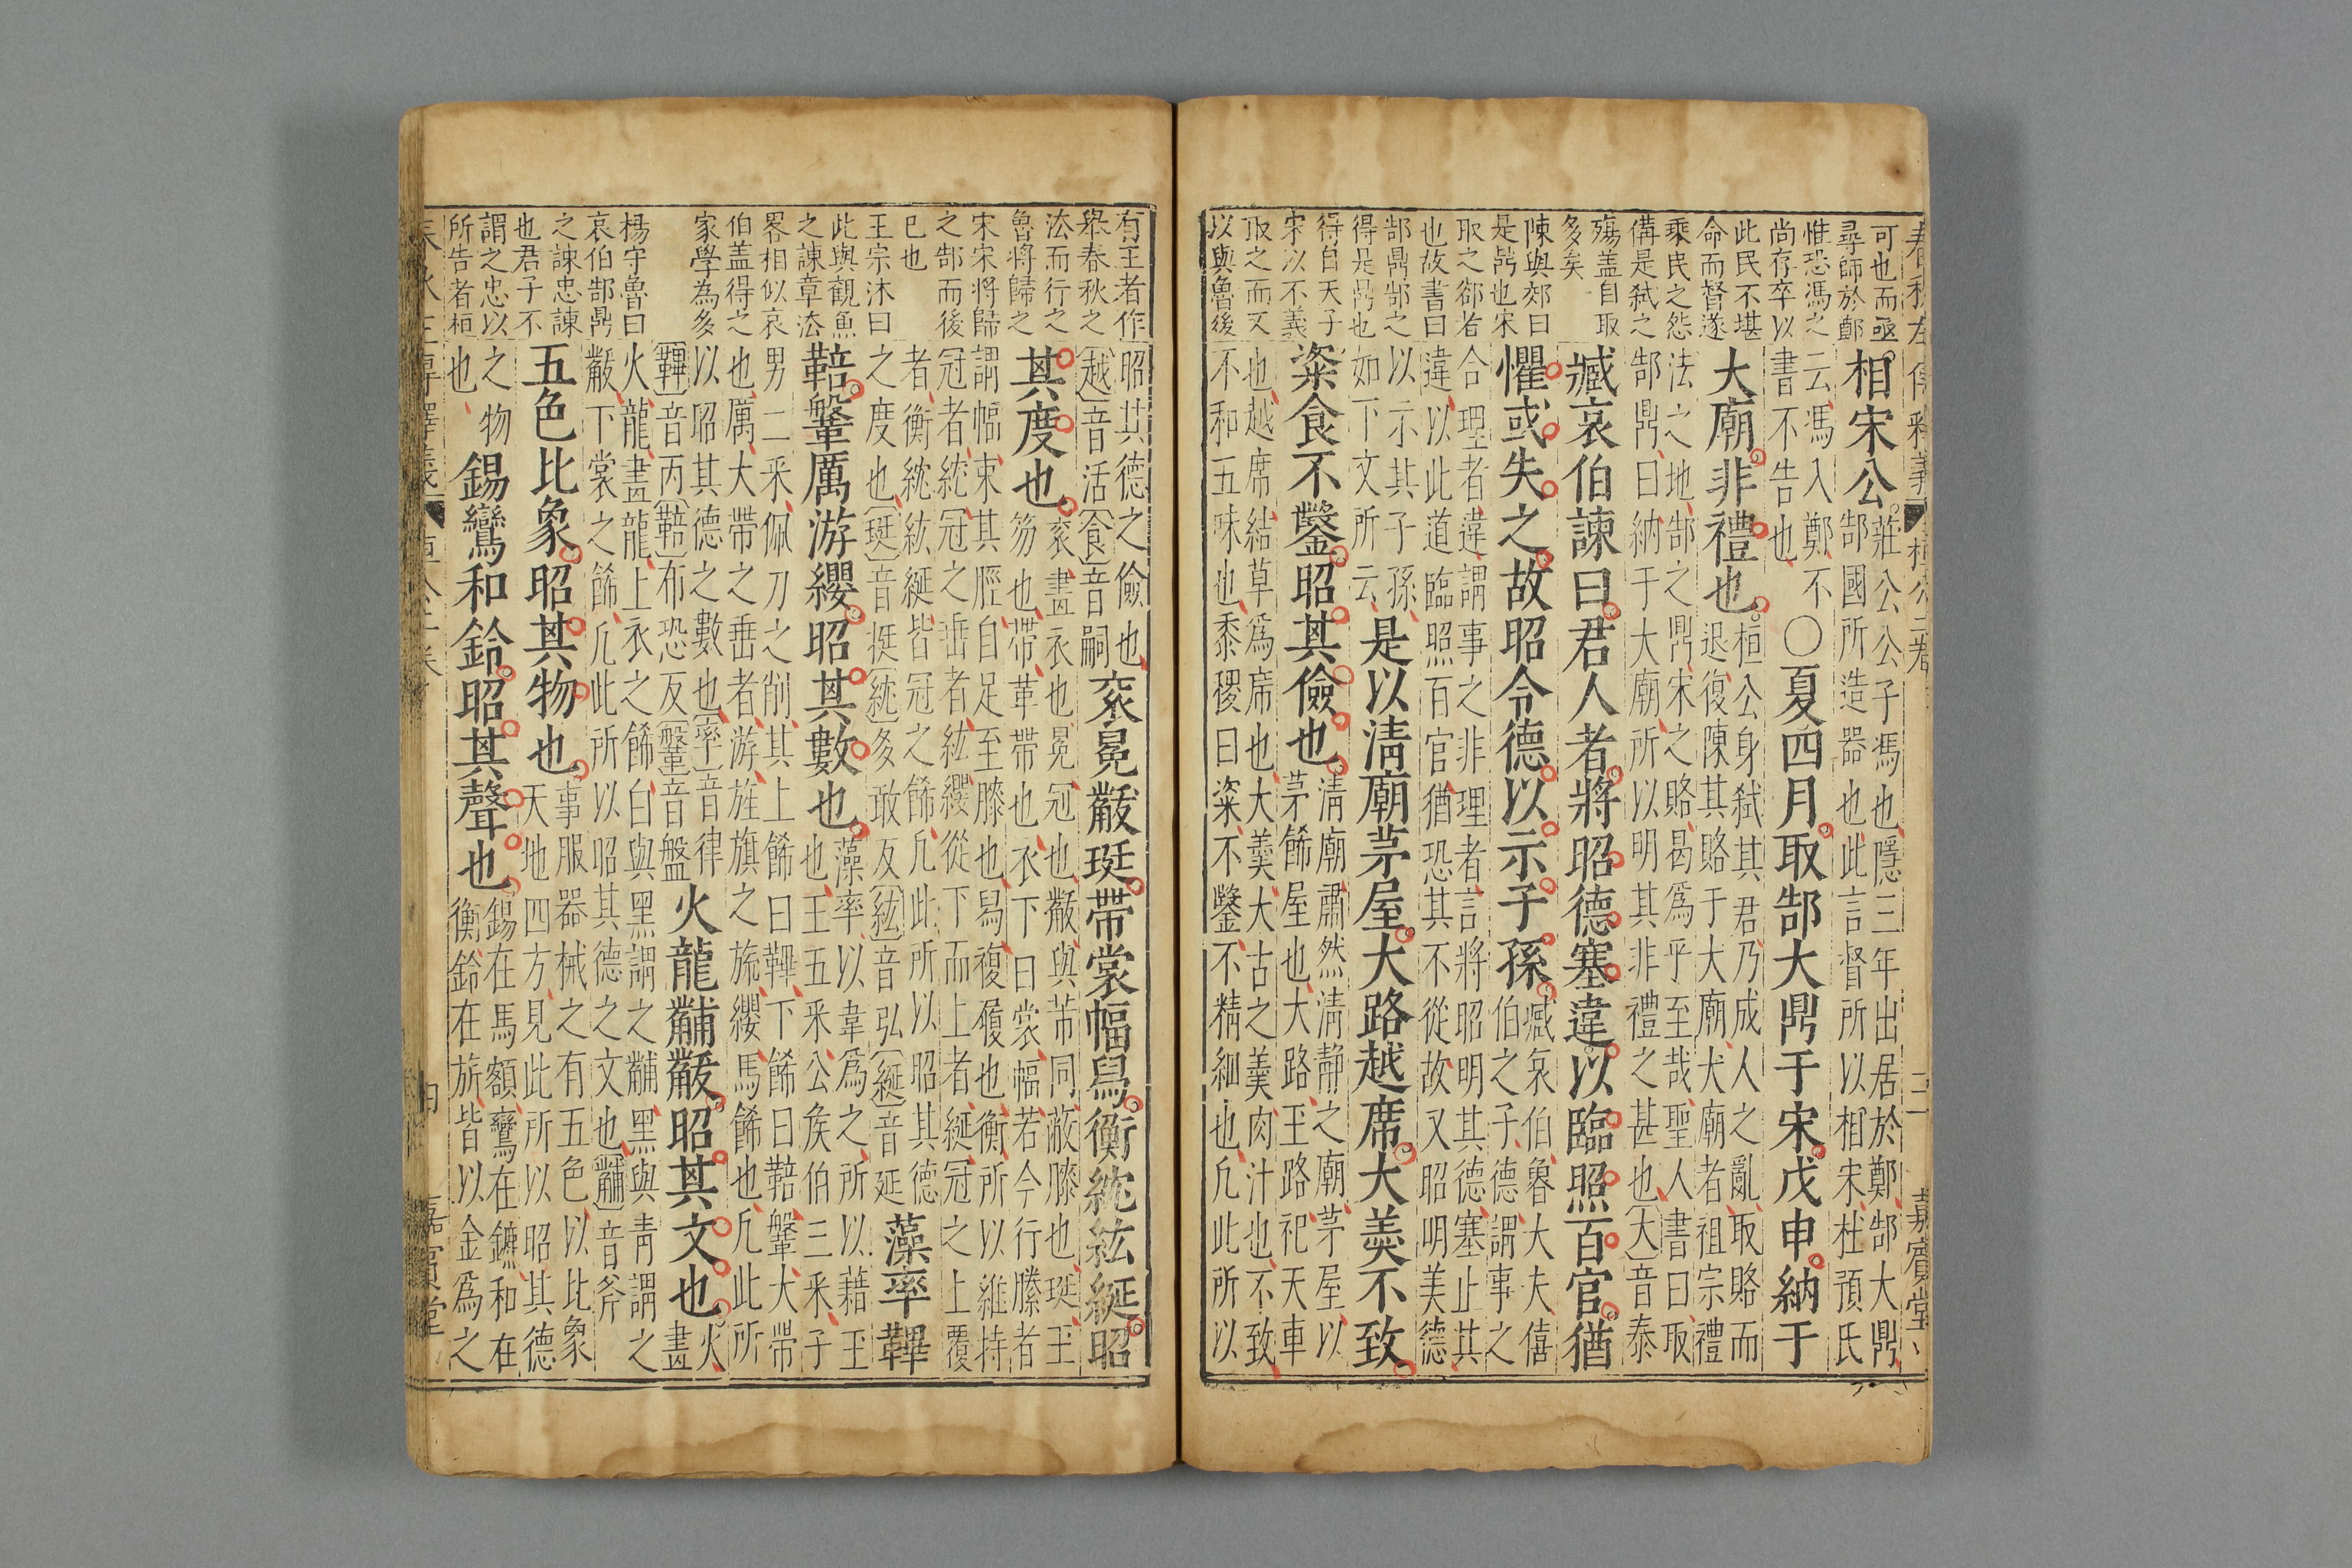 春秋左傳釋義 桓公二卷 三 嘉賓堂
可也而亟
尋師於鄭
惟恐馮之
尚存卒以
此民不堪
命而督遂
乘民之怨
備是弒之
殤盖自取
多矣
陳與郊曰
是鼎也宋
取之郤若
也故書曰
郜鼎郜之
得是鼎也
得自天子
宋以不義
取之而又
以與魯後
相宋公。莊公公子馮也隱三年出居於鄭郜大鼎
郜國所造器也此言督所以相宋杜預氏
云馮入鄭不
書不告也
〇夏四月取郜大鼎于宋戊申納于
大廟非禮也。桓公身弒其君乃成人之亂取賂而
退復陳其賂于大廟大廟者祖宗禮
法之地郜之鼎宋之賂曷爲乎至哉聖人書曰取
郜鼎曰納于大廟所以明其非禮之甚也〔大〕音泰
臧哀伯諫曰君人者將昭德塞違以臨照百官猶
懼或失之故昭令德以示子孫臧哀伯魯大夫僖
伯之子德謂事之
合理者違謂事之非理者言將昭明其德塞止其
違以此道臨照百官猶恐其不從故又昭明美德
以示其子孫
如下文所云
是以清廟茅屋大路越席大羹不致
粢食不鑿昭其儉也清廟肅然清靜之廟茅屋以
茅餙屋也大路王路祀天車
也越席結草爲席也大羹大古之羹肉汁也不致
不和五味也黍稷曰粢不鑿不精細也凢此所以
有王者作
舉春秋之
法而行之
魯將歸之
宋宋將歸
之郜而後
已也
王宗沐曰
此與觀魚
之諫章法
畧相似哀
伯盖得之
家學為多
楊守魯曰
哀伯郜鼎
之諫忠諫
也君子不
謂之忠以
所告者桓
昭其德之儉也
〔越〕音活〔食〕音嗣
衮冕黻珽帶裳幅舄衡紞紘綖昭
其度也衮畫衣也冕冠也黻與芾同蔽膝也珽王
笏也帶革帶也衣下曰裳幅若今行縢者
謂幅束其脛自足至膝也舄複履也衡所以維持
冠者紞冠之垂者紘纓從下而上者綖冠之上覆
者衡紞紘綖皆冠之餙凢此所以昭其德
之度也〔珽〕音挺〔紞〕多敢反〔紘〕音弘〔綖〕音延
藻率鞞
鞛鞶厲游纓昭其數也藻率以韋爲之所以藉王
也王五釆公侯伯三釆子
男二釆佩刀之削其上餙曰鞞下餙曰鞛鞶大帶
也厲大帶之垂者游旌旗之旒纓馬餙也凢此所
以昭其德之數也〔率〕音律
〔鞞〕音丙〔鞛〕布恐反〔鞶〕音盤
火龍黼黻昭其文也火
畫
火龍畫龍上衣之餙白與黑謂之黼黑與青謂之
黻下裳之餙凢此所以昭其德之文也〔黼〕音斧
五色比象昭其物也事服器械之有五色以比象
天地四方見此所以昭其德
之物
也
錫鸞和鈴昭其聲也錫在馬額鸞在鑣和在
衡鈴在旂皆以金爲之
嘉賓堂